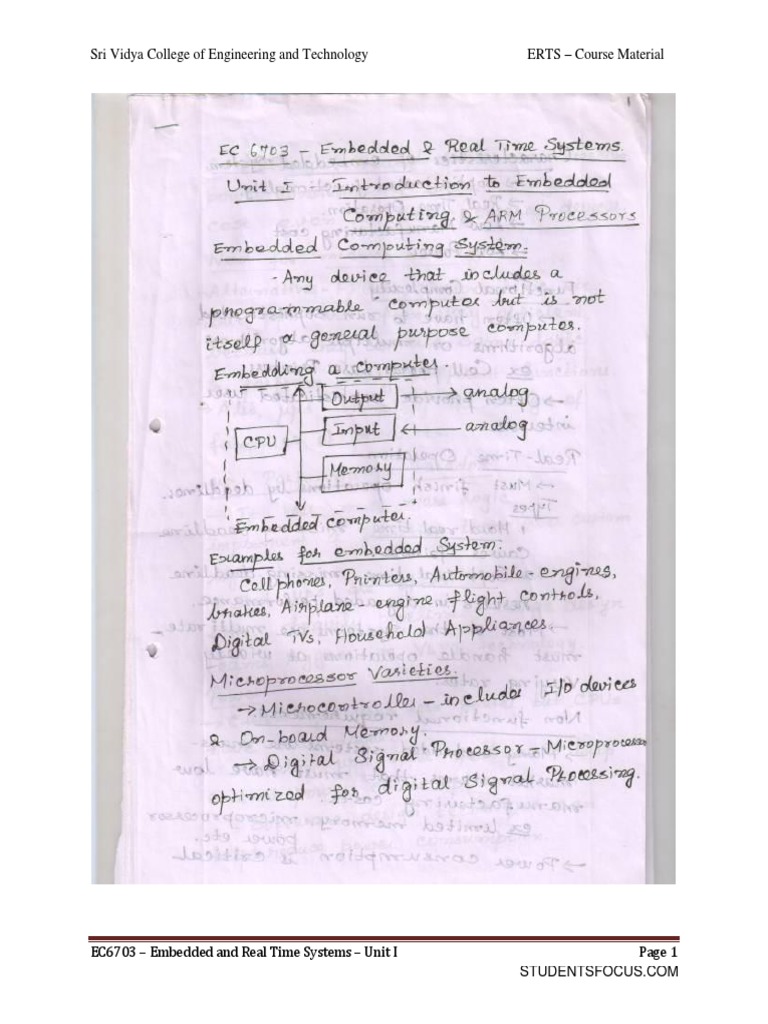 Sri Vidya College of Engineering and Technology ERTS – Course Material
1
EC 6703 – Embedded & Real Time Systems.
Unit I - Introduction to Embedded
Computing & ARM Processors
Embedded Computing System.
- Any device that includes a
programmable computer but is not
itself a general purpose computer.
Embedding a computer.
CPU
Output → analog
Input ← analog
Memory
Embedded computer.
Examples for embedded System:
Cell phones, Printers, Automobile - engines,
brakes, Airplane - engine, flight controls,
Digital TVs, Household Appliances.
Microprocessor Varieties.
→ Microcontroller – includes I/O devices
& On-board Memory.
→ Digital Signal Processor – Microprocessor
optimized for digital Signal Processing.
EC6703 – Embedded and Real Time Systems – Unit I Page 1
STUDENTSFOCUS.COM